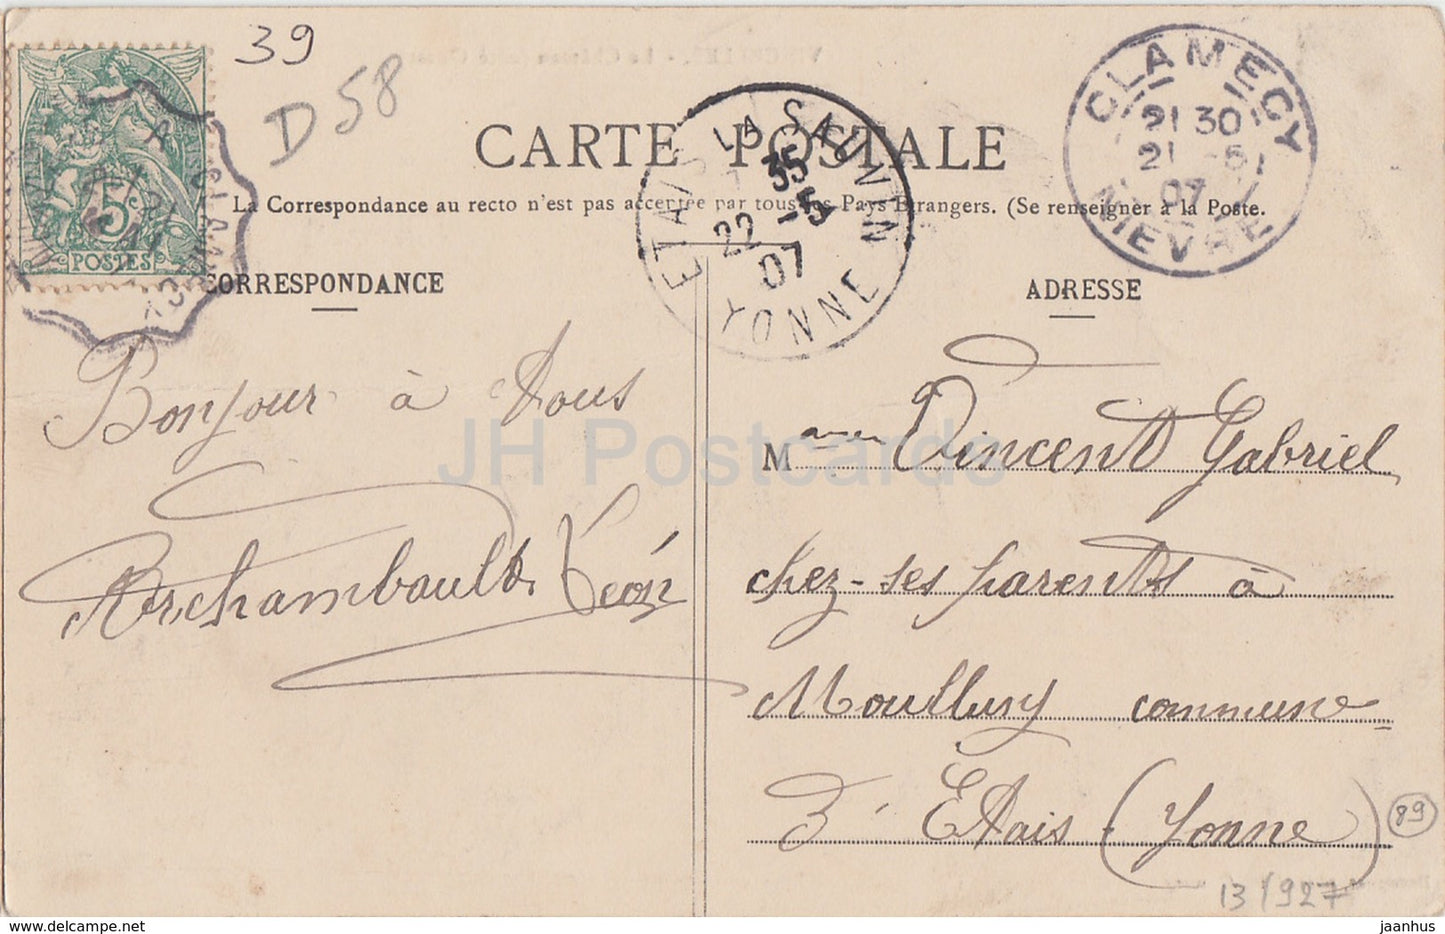 39
D 58
CARTE POSTALE
La Correspondance au recto n'est pas acceptée par tous les Pays Étrangers. (Se renseigner à la Poste.
CORRESPONDANCE
ADRESSE
5
POSTES
ETAIS LA SAUVIN
35
22 -5
07
YONNE
CLAMECY
21 30
21 -5
07
NIEVRE
Bonjour à tous
Archambault Léon
M Vincent Gabriel
chez ses parents à
Moullury commune
d'Etais (Yonne)
89
13/927
JH Postcards
delcampe.net
jaanhus